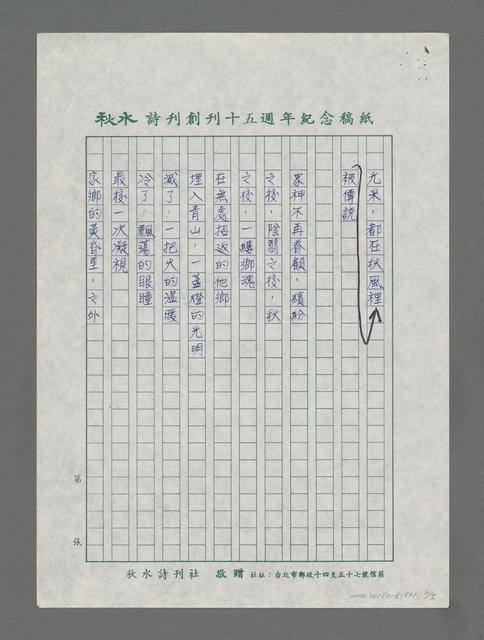 秋水 詩刊創刊十五週年紀念稿紙
光采，都在秋風裡
被傳說
眾神不再眷顧，繽紛
之後，陰翳之後，秋
之後，一縷鄉魂
在無處招返的他鄉
埋入青山，一盞燈的光明
滅了！一把火的溫暖
冷了！飄蕩的眼瞳
最後一次凝視
家鄉的黃昏星，之外
第 張
秋水詩刊社 敬贈 社址：台北市郵政十四支五十七號信箱